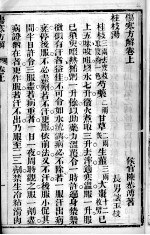 傷寒方解卷上
侯官陳恭溥著
桂枝湯
桂枝 芍藥三兩 甘草二兩 生薑三兩 大棗
上五味 三味以水七升微火煮取三升去滓適寒溫服一升服
已須臾啜熱稀粥一升餘以助藥力溫覆令一時許遍身
微似有汗者益佳不可令如水流漓病必不除若一服汗出病
差停後服不必盡劑若不汗更服依前法又不汗後服小促其
間半日許令三服盡若病重者一日一夜周時觀之服一劑盡
病證猶在者更作服若汗不出乃服至二三劑禁生冷粘滑肉
傷寒方解 卷上